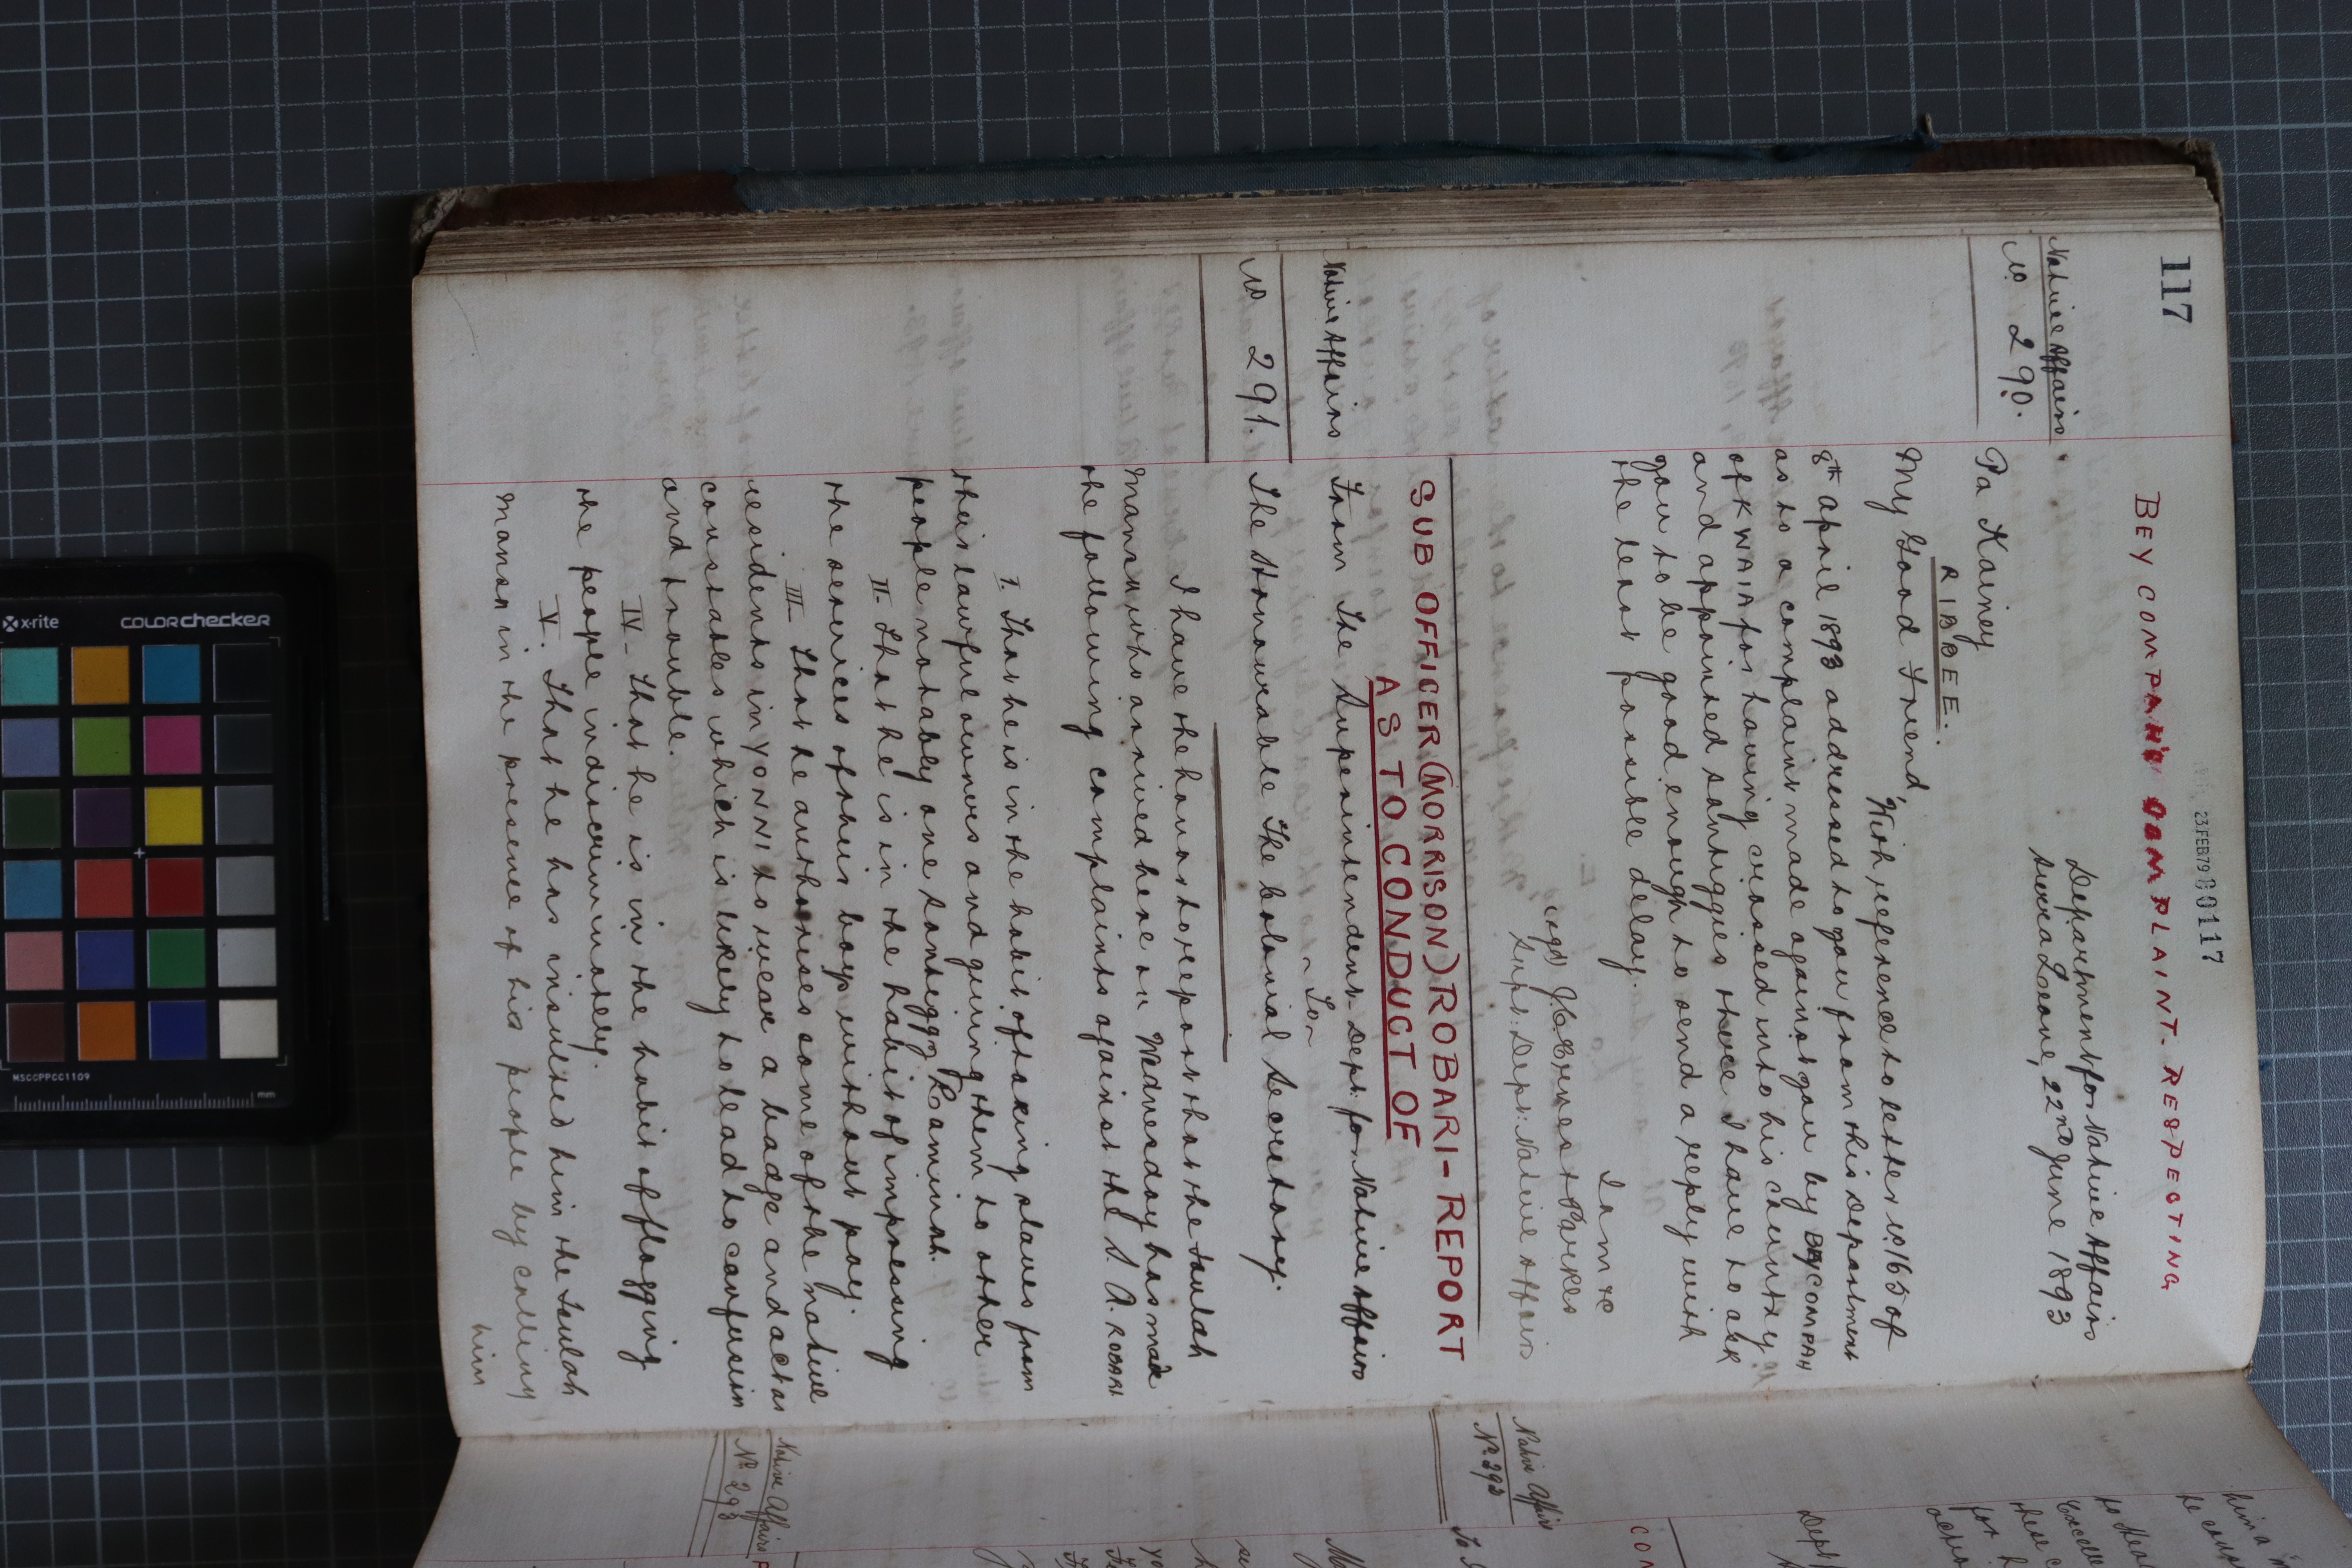 117
23 FEB 79 80117
BEY COMPAH COMPLAINT. RESPECTING
Native Affairs
No 290.
Department for Native Affairs
Sierra Leone, 22nd June 1893
Pa Kainey
RIBBEE.
My Good Friend,
With reference to letter No 165 of
8th April 1893 addressed to you from this Department
as to a complaint made against you by BEY COMPAH
of KWAIA for having crossed into his country
and appointed Santiggies there I have to ask
you to be good enough to send a reply with
the least possible delay.
I am &c
(Sgd) J. C. Ernest Parkes
Supt: Dept: Native Affairs
SUB OFFICER (MORRISON) ROBARI - REPORT
AS TO CONDUCT OF
Native Affairs
No 291.
From The Superintendent Dept: for Native Affairs
To
The Honourable The Colonial Secretary.
I have the honor to report that the
who arrived here on Wednesday has made
the following complaints against the S. O. ROBARI
I. That he is in the habit of taking slaves from
their lawful owners and giving them to other
people notably one Santiggy Laminah.
II - That he is in the habit of impressing
the services of his boys without pay.
III - That he authorises some of the native
residents in YONNI to wear a badge and act as
constables which is likely to lead to confusion
and trouble.
IV - That he is in the habit of flogging
the people indiscriminately.
V. That he has insulted him the
in the presence of his people by calling
him
Native Affairs
No 292
Native Affairs
No 293
him a